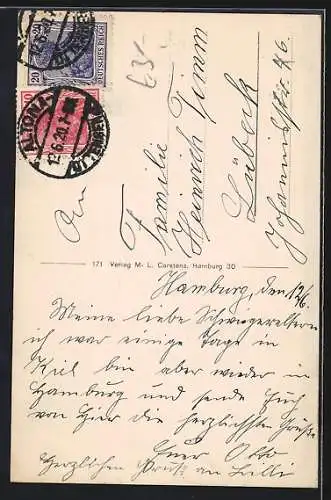 An
Familie
Heinrich Timm
Lübeck
Johannisstr. 46.
171 Verlag M. L. Carstens, Hamburg 30
Hamburg, den 12/6.
Meine liebe Schwiegereltern
ich war einige Tage in
Kiel bin aber wieder in
Hamburg und sende Euch
von hier die herzlichsten Grüße
Euer Otto
Herzlichen Gruß an Lilli
20 20
DEUTSCHES REICH
ALTONA
12.6.20.